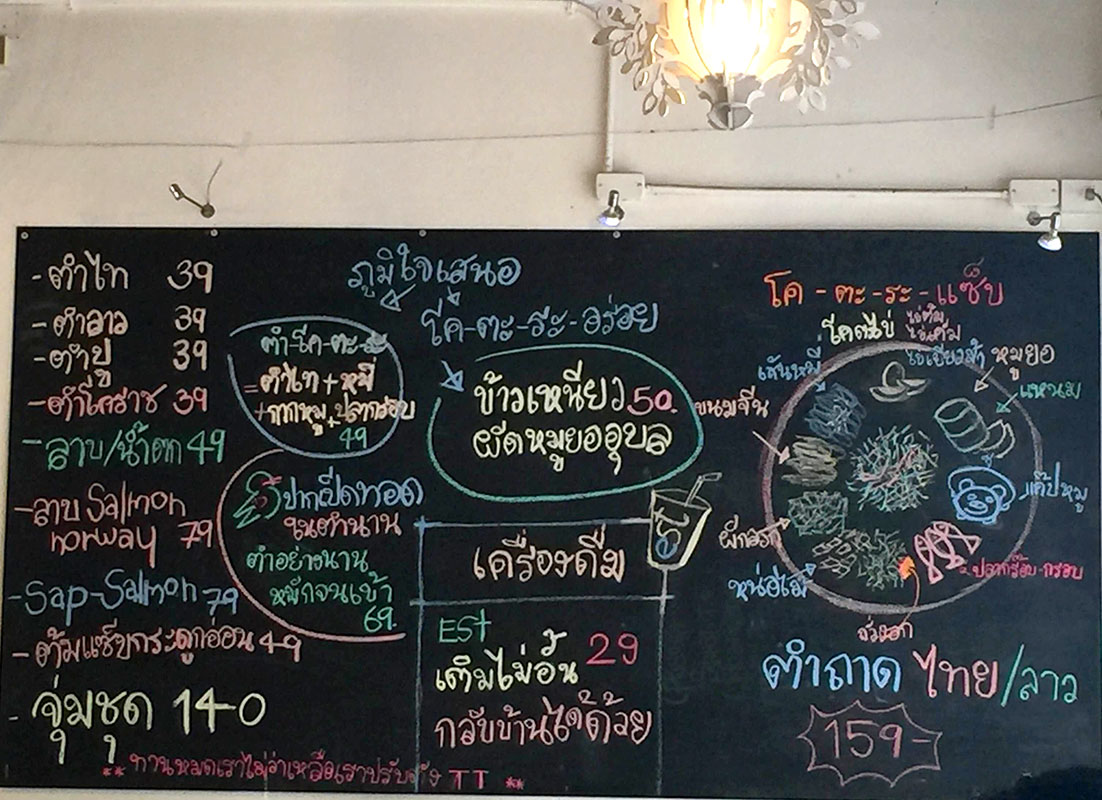 -ตำไท 39
-ตำลาว 39
-ตำปู 39
-ตำโคราช 39
-ลาบ/น้ำตก 49
-ลาบ Salmon
norway 79
-Sap-Salmon 79
-ต้มแซ่บกระดูกอ่อน 49
-จุ่มชุด 140
** ทานหมดเราไม่ว่าเหลือเราปรับจริง TT **
ภูมิใจเสนอ
ตำ-โค-ตะ-ระ
=ตำไท+หมี่
+กากหมู,ปลากรอบ
49
ปีกเป็ดทอด
ในตำนาน
ตำอย่างนาน
หมักจนเข้า
69.
โค-ตะ-ระ-อร่อย
ข้าวเหนียว 50.
ผัดหมูยออุบล
เครื่องดื่ม
est
EST
เติมไม่อั้น 29
กลับบ้านได้ด้วย
โค-ตะ-ระ-แซ่บ
โคตรไข่
ไข่ต้ม
ไข่เค็ม
ไข่เยี่ยวม้า
หมูยอ
แหนม
แค๊ปหมู
ปลากรอบ-กรอบ
ถั่วงอก
หน่อไม้
ขนมจีน
เส้นหมี่
ตำถาด ไทย/ลาว
159-